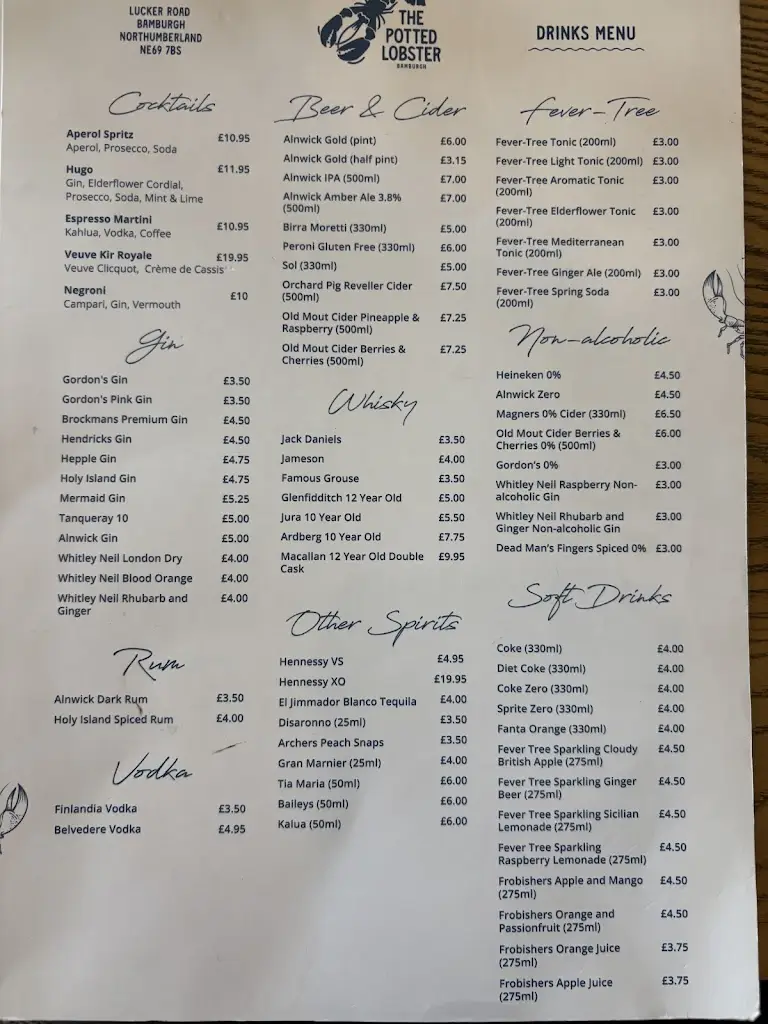 LUCKER ROAD
BAMBURGH
NORTHUMBERLAND
NE69 7BS
THE
POTTED
LOBSTER
BAMBURGH
DRINKS MENU
Cocktails
Aperol Spritz £10.95
Aperol, Prosecco, Soda
Hugo £11.95
Gin, Elderflower Cordial,
Prosecco, Soda, Mint & Lime
Espresso Martini £10.95
Kahlua, Vodka, Coffee
Veuve Kir Royale £19.95
Veuve Clicquot, Crème de Cassis
Negroni £10
Campari, Gin, Vermouth
Gin
Gordon's Gin £3.50
Gordon's Pink Gin £3.50
Brockmans Premium Gin £4.50
Hendricks Gin £4.50
Hepple Gin £4.75
Holy Island Gin £4.75
Mermaid Gin £5.25
Tanqueray 10 £5.00
Alnwick Gin £5.00
Whitley Neil London Dry £4.00
Whitley Neil Blood Orange £4.00
Whitley Neil Rhubarb and £4.00
Ginger
Rum
Alnwick Dark Rum £3.50
Holy Island Spiced Rum £4.00
Vodka
Finlandia Vodka £3.50
Belvedere Vodka £4.95
Beer & Cider
Alnwick Gold (pint) £6.00
Alnwick Gold (half pint) £3.15
Alnwick IPA (500ml) £7.00
Alnwick Amber Ale 3.8% £7.00
(500ml)
Birra Moretti (330ml) £5.00
Peroni Gluten Free (330ml) £6.00
Sol (330ml) £5.00
Orchard Pig Reveller Cider £7.50
(500ml)
Old Mout Cider Pineapple & £7.25
Raspberry (500ml)
Old Mout Cider Berries & £7.25
Cherries (500ml)
Whisky
Jack Daniels £3.50
Jameson £4.00
Famous Grouse £3.50
Glenfidditch 12 Year Old £5.00
Jura 10 Year Old £5.50
Ardberg 10 Year Old £7.75
Macallan 12 Year Old Double £9.95
Cask
Other Spirits
Hennessy VS £4.95
Hennessy XO £19.95
El Jimmador Blanco Tequila £4.00
Disaronno (25ml) £3.50
Archers Peach Snaps £3.50
Gran Marnier (25ml) £4.00
Tia Maria (50ml) £6.00
Baileys (50ml) £6.00
Kalua (50ml) £6.00
Fever-Tree
Fever-Tree Tonic (200ml) £3.00
Fever-Tree Light Tonic (200ml) £3.00
Fever-Tree Aromatic Tonic £3.00
(200ml)
Fever-Tree Elderflower Tonic £3.00
(200ml)
Fever-Tree Mediterranean £3.00
Tonic (200ml)
Fever-Tree Ginger Ale (200ml) £3.00
Fever-Tree Spring Soda £3.00
(200ml)
Non-alcoholic
Heineken 0% £4.50
Alnwick Zero £4.50
Magners 0% Cider (330ml) £6.50
Old Mout Cider Berries & £6.00
Cherries 0% (500ml)
Gordon's 0% £3.00
Whitley Neil Raspberry Non- £3.00
alcoholic Gin
Whitley Neil Rhubarb and £3.00
Ginger Non-alcoholic Gin
Dead Man's Fingers Spiced 0% £3.00
Soft Drinks
Coke (330ml) £4.00
Diet Coke (330ml) £4.00
Coke Zero (330ml) £4.00
Sprite Zero (330ml) £4.00
Fanta Orange (330ml) £4.00
Fever Tree Sparkling Cloudy £4.50
British Apple (275ml)
Fever Tree Sparkling Ginger £4.50
Beer (275ml)
Fever Tree Sparkling Sicilian £4.50
Lemonade (275ml)
Fever Tree Sparkling £4.50
Raspberry Lemonade (275ml)
Frobishers Apple and Mango £4.50
(275ml)
Frobishers Orange and £4.50
Passionfruit (275ml)
Frobishers Orange Juice £3.75
(275ml)
Frobishers Apple Juice £3.75
(275ml)